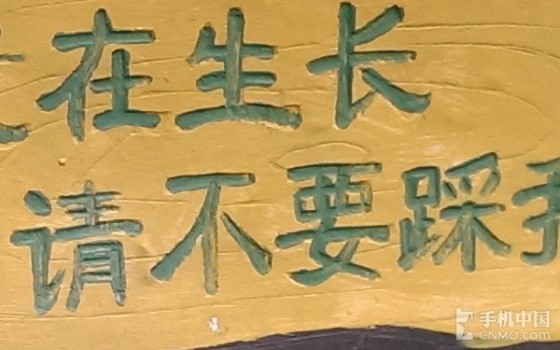 在生长
请不要踩
手机中国
CNMO.COM